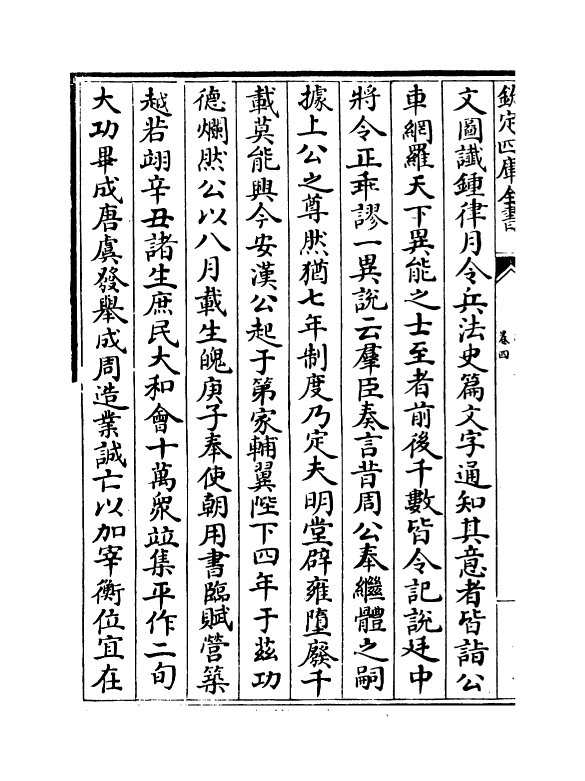 欽定四庫全書
卷四
文圖讖鍾律月令兵法史篇文字通知其意者皆詣公
車網羅天下異能之士至者前後千數皆令記說廷中
將令正乖謬一異說云羣臣奏言昔周公奉繼體之嗣
據上公之尊然猶七年制度乃定夫明堂辟雍墮廢千
載莫能興今安漢公起于第家輔翼陛下四年于茲功
德爛然公以八月載生魄庚子奉使朝用書臨賦營築
越若翊辛丑諸生庶民大和會十萬衆竝集平作二旬
大功畢成唐虞發舉成周造業誠亡以加宰衡位宜在